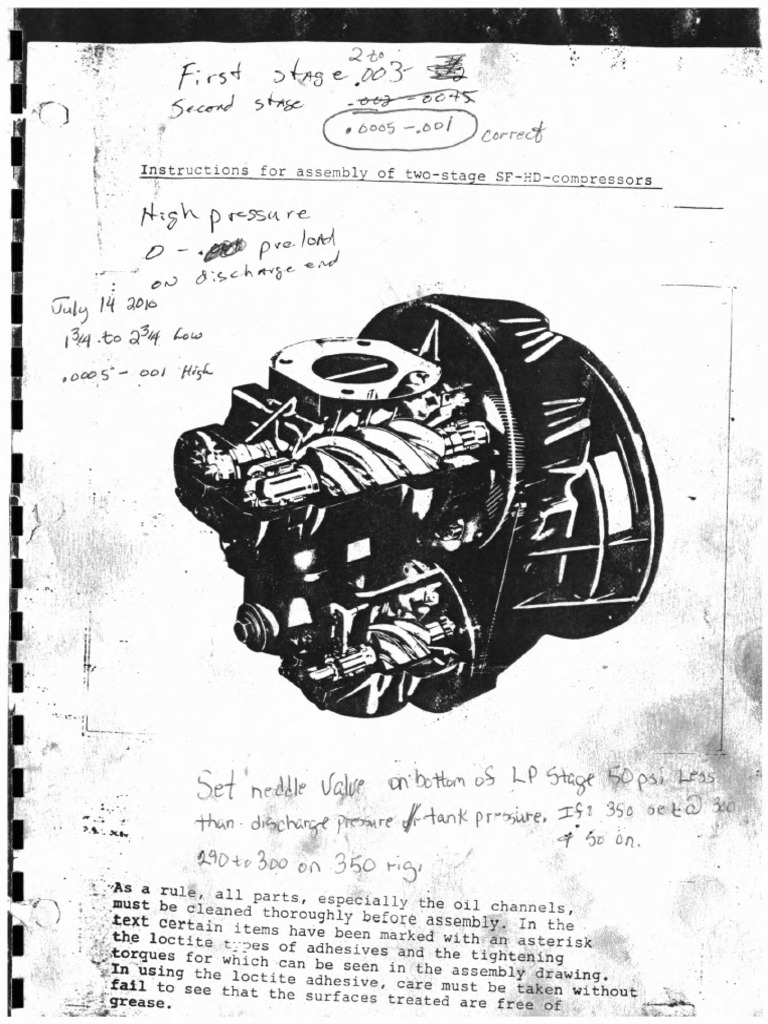 2 to
First stage .003-
Second stage .002 - .0045
.0005 - .001 correct
Instructions for assembly of two-stage SF-HD-compressors
High pressure
0 - preload
on discharge end
July 14 2010
1 3/4 to 2 3/4 Low
.0005 - 001 High
Set neddle valve on bottom of LP Stage 50 psi Less
than discharge pressure or tank pressure. If 350 set @ 300
50 on.
290 to 300 on 350 rig.
As a rule, all parts, especially the oil channels,
must be cleaned thoroughly before assembly. In the
text certain items have been marked with an asterisk
the loctite types of adhesives and the tightening
torques for which can be seen in the assembly drawing.
In using the loctite adhesive, care must be taken without
fail to see that the surfaces treated are free of
grease.